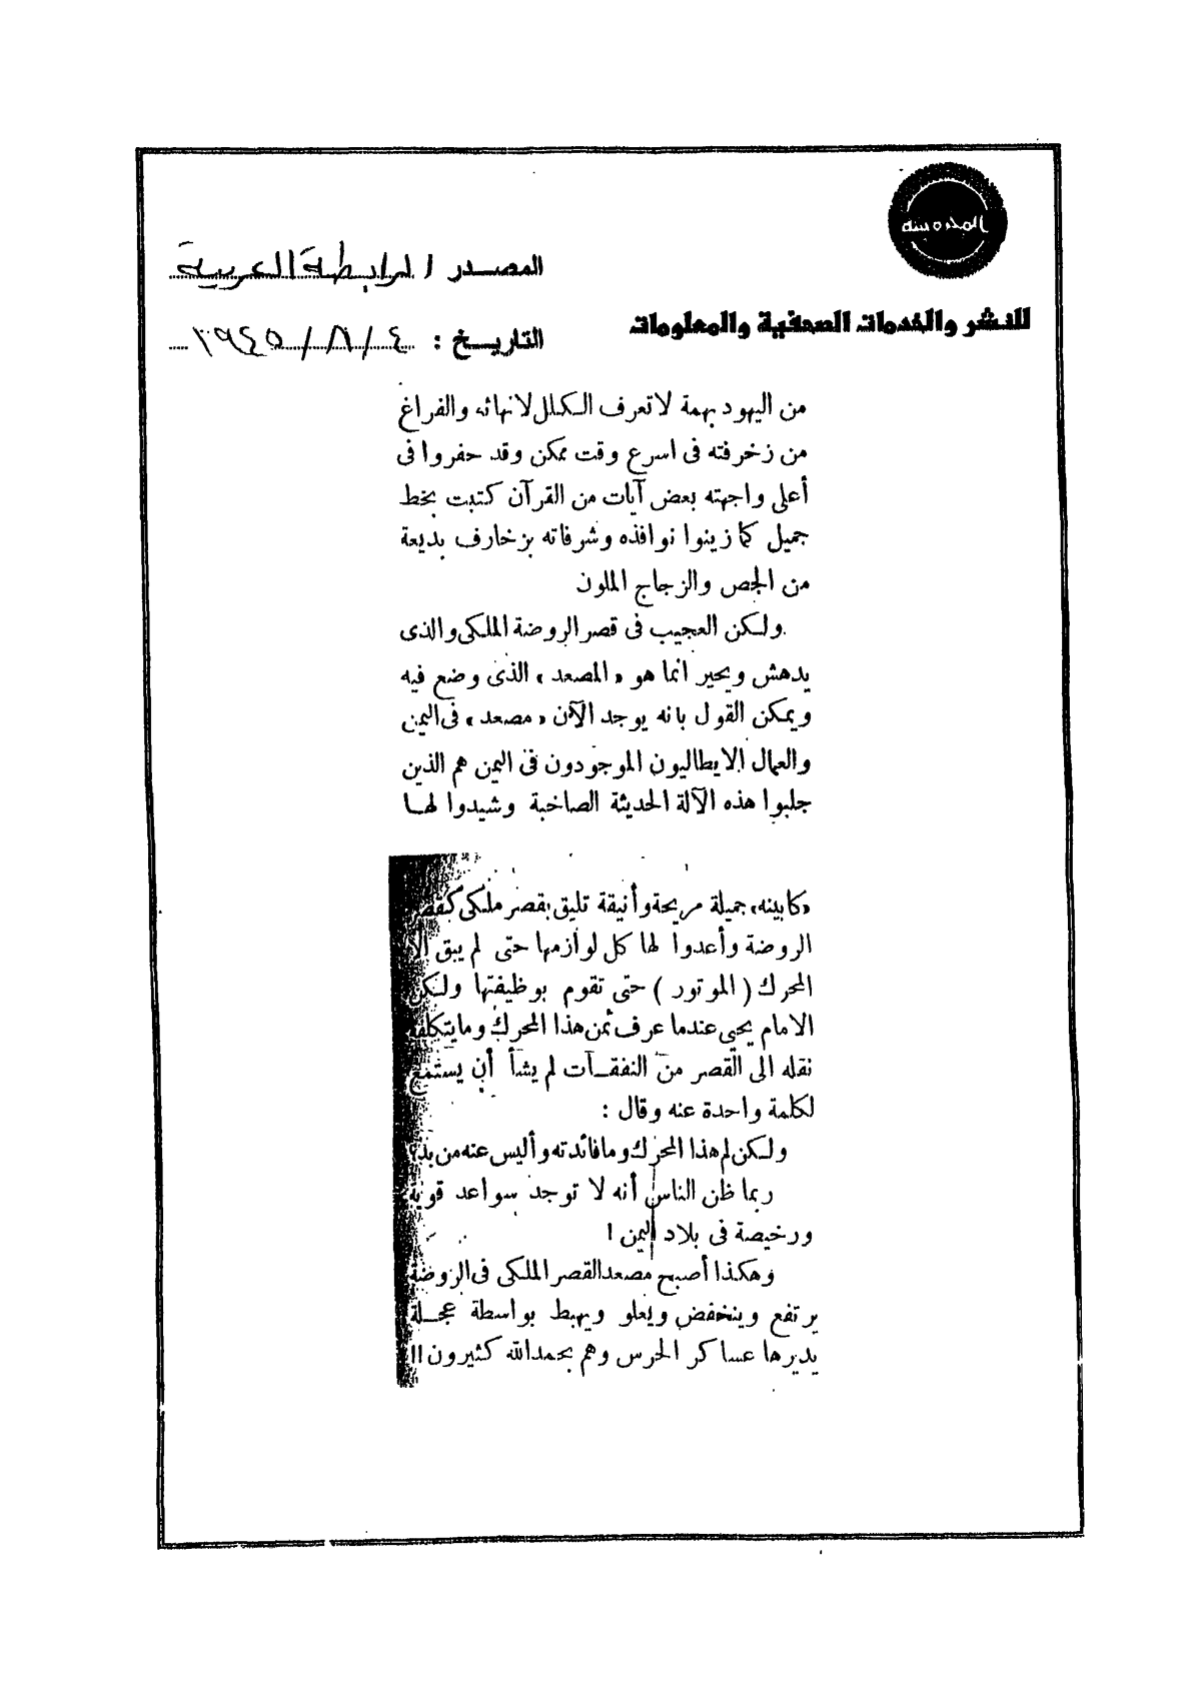 المصدر الرابطة العربية
للنشر والخدمات الصحفية والمعلومات
التاريخ : ٤ / ٨ / ١٩٤٥
من اليهود بهمة لا تعرف الكلل لانهائه والفراغ
من زخرفته فى اسرع وقت ممكن وقد حفروا فى
أعلى واجهته بعض آيات من القرآن كتبت بخط
جميل كما زينوا نوافذه وشرفاته بزخارف بديعة
من الجص والزجاج الملون
ولكن العجيب فى قصر الروضة الملكى والذى
يدهش ويحير انما هو « المصعد » الذى وضع فيه
ويمكن القول بانه يوجد الآن « مصعد » فى اليمن
والعمال الايطاليون الموجودون فى اليمن هم الذين
جلبوا هذه الآلة الحديثة الصاخبة وشيدوا لها
«كابينه» جميلة مريحة وأنيقة تليق بقصر ملكى كقصر
الروضة وأعدوا لها كل لوازمها حتى لم يبق الا
المحرك ( الموتور ) حتى تقوم بوظيفتها ولكن
الامام يحيى عندما عرف ثمن هذا المحرك وما يتكلفه
نقله الى القصر من النفقات لم يشأ أن يستمع
لكلمة واحدة عنه وقال :
ولكن لم هذا المحرك وما فائدته وأليس عنه من بد
ربما ظن الناس أنه لا توجد سواعد قوية
ورخيصة فى بلاد اليمن !
وهكذا أصبح مصعد القصر الملكى فى الروضة
يرتفع وينخفض ويعلو ويهبط بواسطة عجلة
يديرها عساكر الحرس وهم بحمد الله كثيرون !!